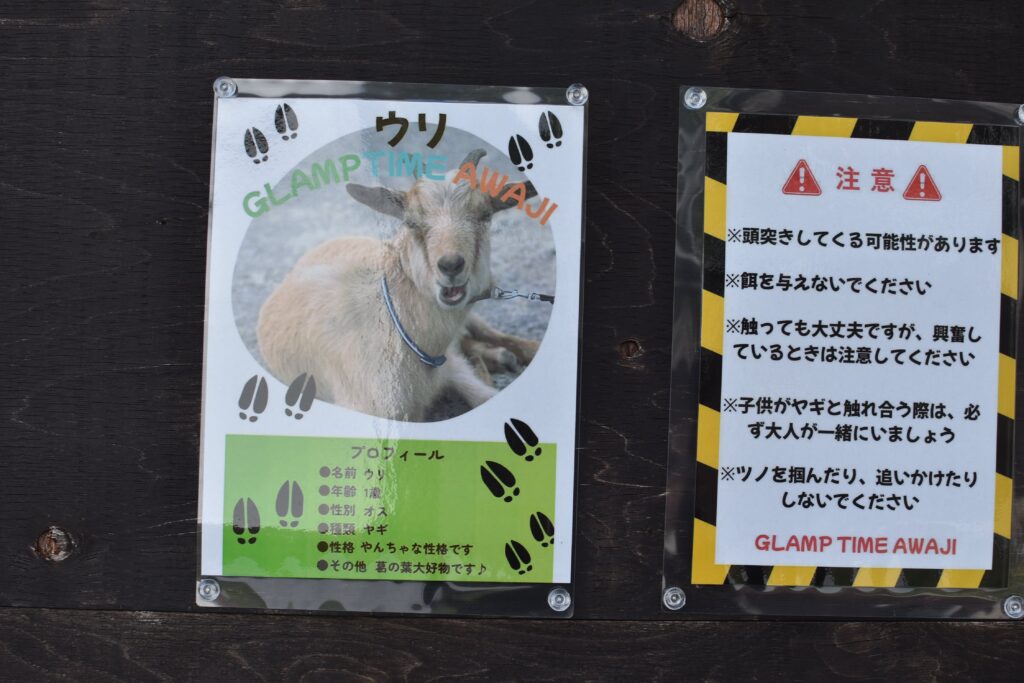 ウリ
GLAMPTIME AWAJI
プロフィール
●名前 ウリ
●年齢 1歳
●性別 オス
●種類 ヤギ
●性格 やんちゃな性格です
●その他 葛の葉大好物です♪
注意
※頭突きしてくる可能性があります
※餌を与えないでください
※触っても大丈夫ですが、興奮し
ているときは注意してください
※子供がヤギと触れ合う際は、必
ず大人が一緒にいましょう
※ツノを掴んだり、追いかけたり
しないでください
GLAMP TIME AWAJI